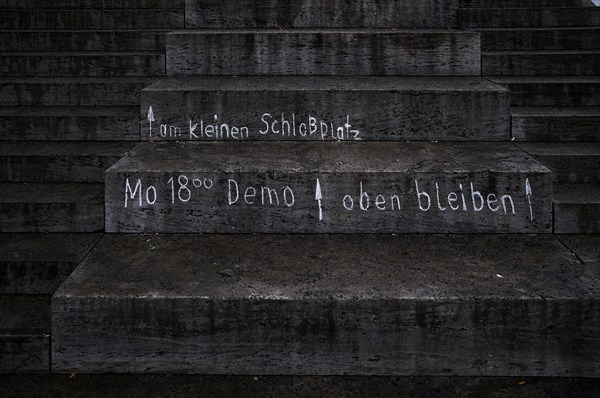 ↑ am kleinen Schloßplatz
Mo 18⁰⁰ Demo ↑ oben bleiben ↑